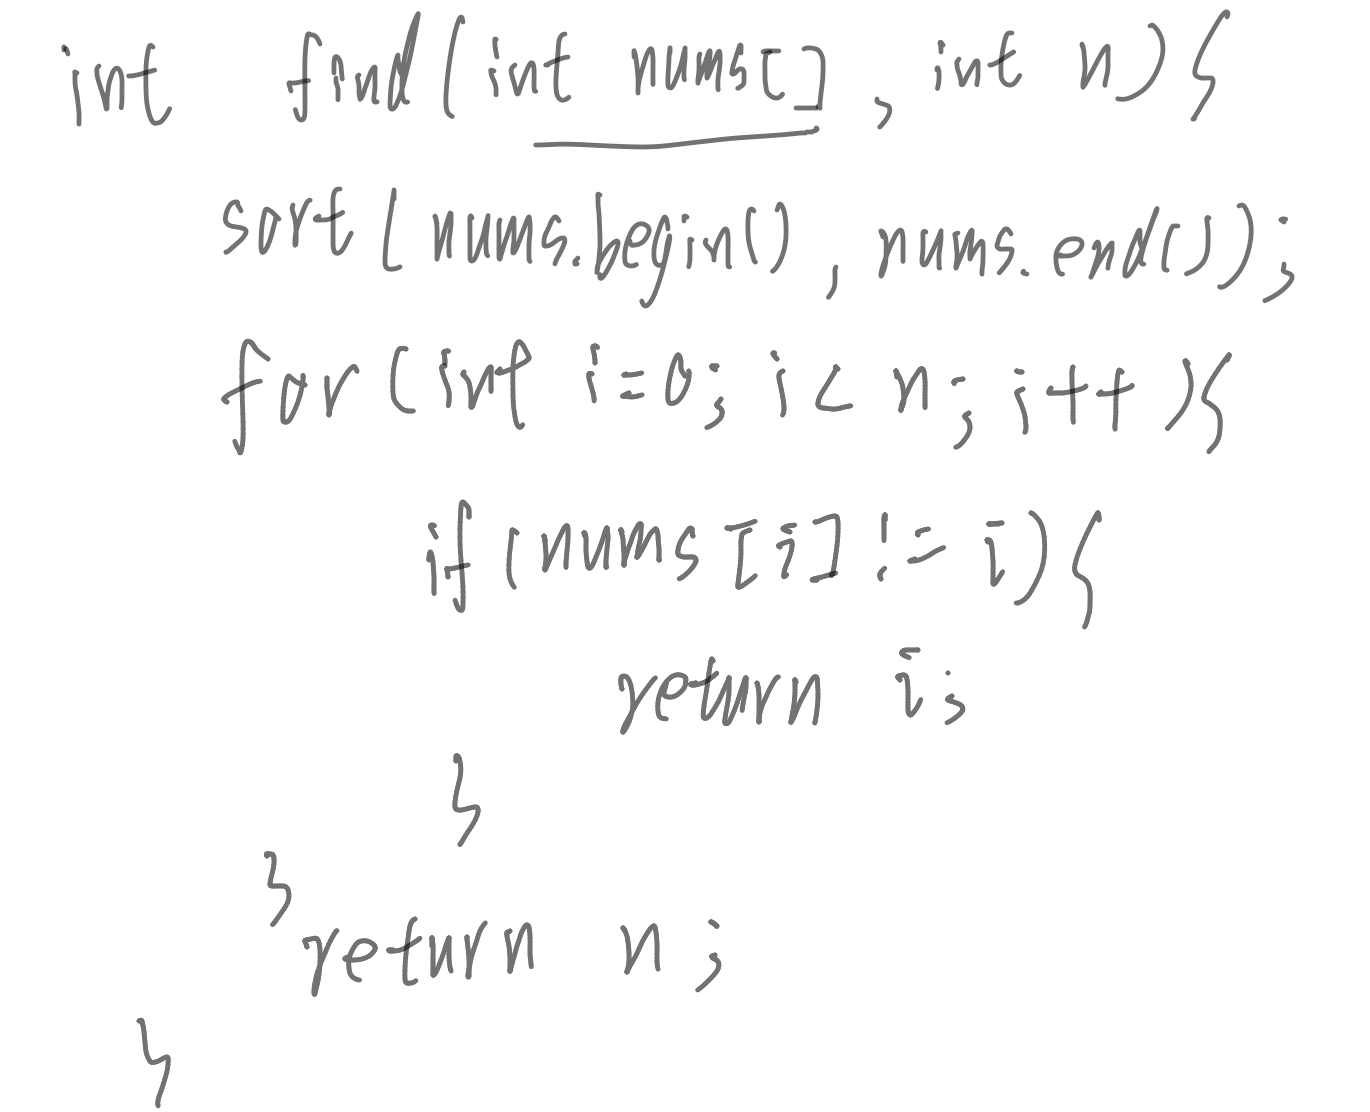 int find(int nums[], int n){
sort(nums.begin(), nums.end());
for(int i=0; i<n; i++){
if(nums[i] != i){
return i;
}
}
return n;
}